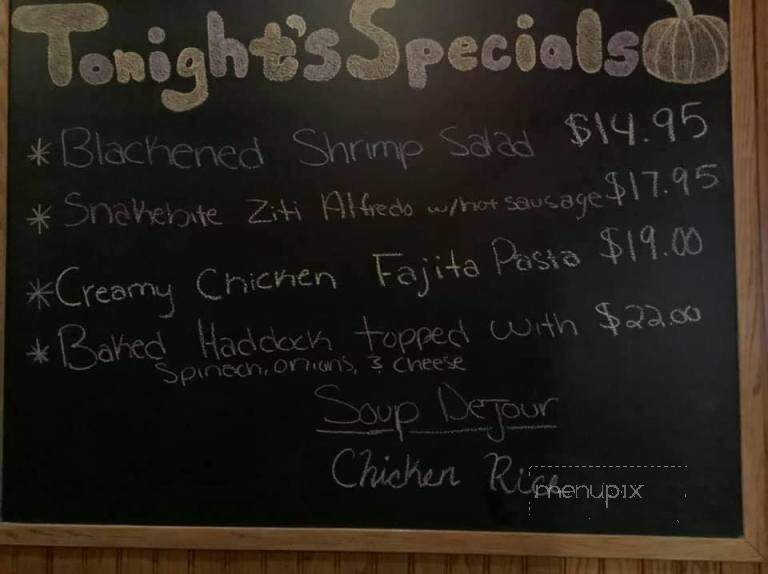 Tonight's Specials
* Blackened Shrimp Salad $14.95
* Snakebite Ziti Alfredo w/hot sausage $17.95
* Creamy Chicken Fajita Pasta $19.00
* Baked Haddock topped with $22.00
Spinach, onions, & cheese
Soup DeJour
Chicken Rice
menupix